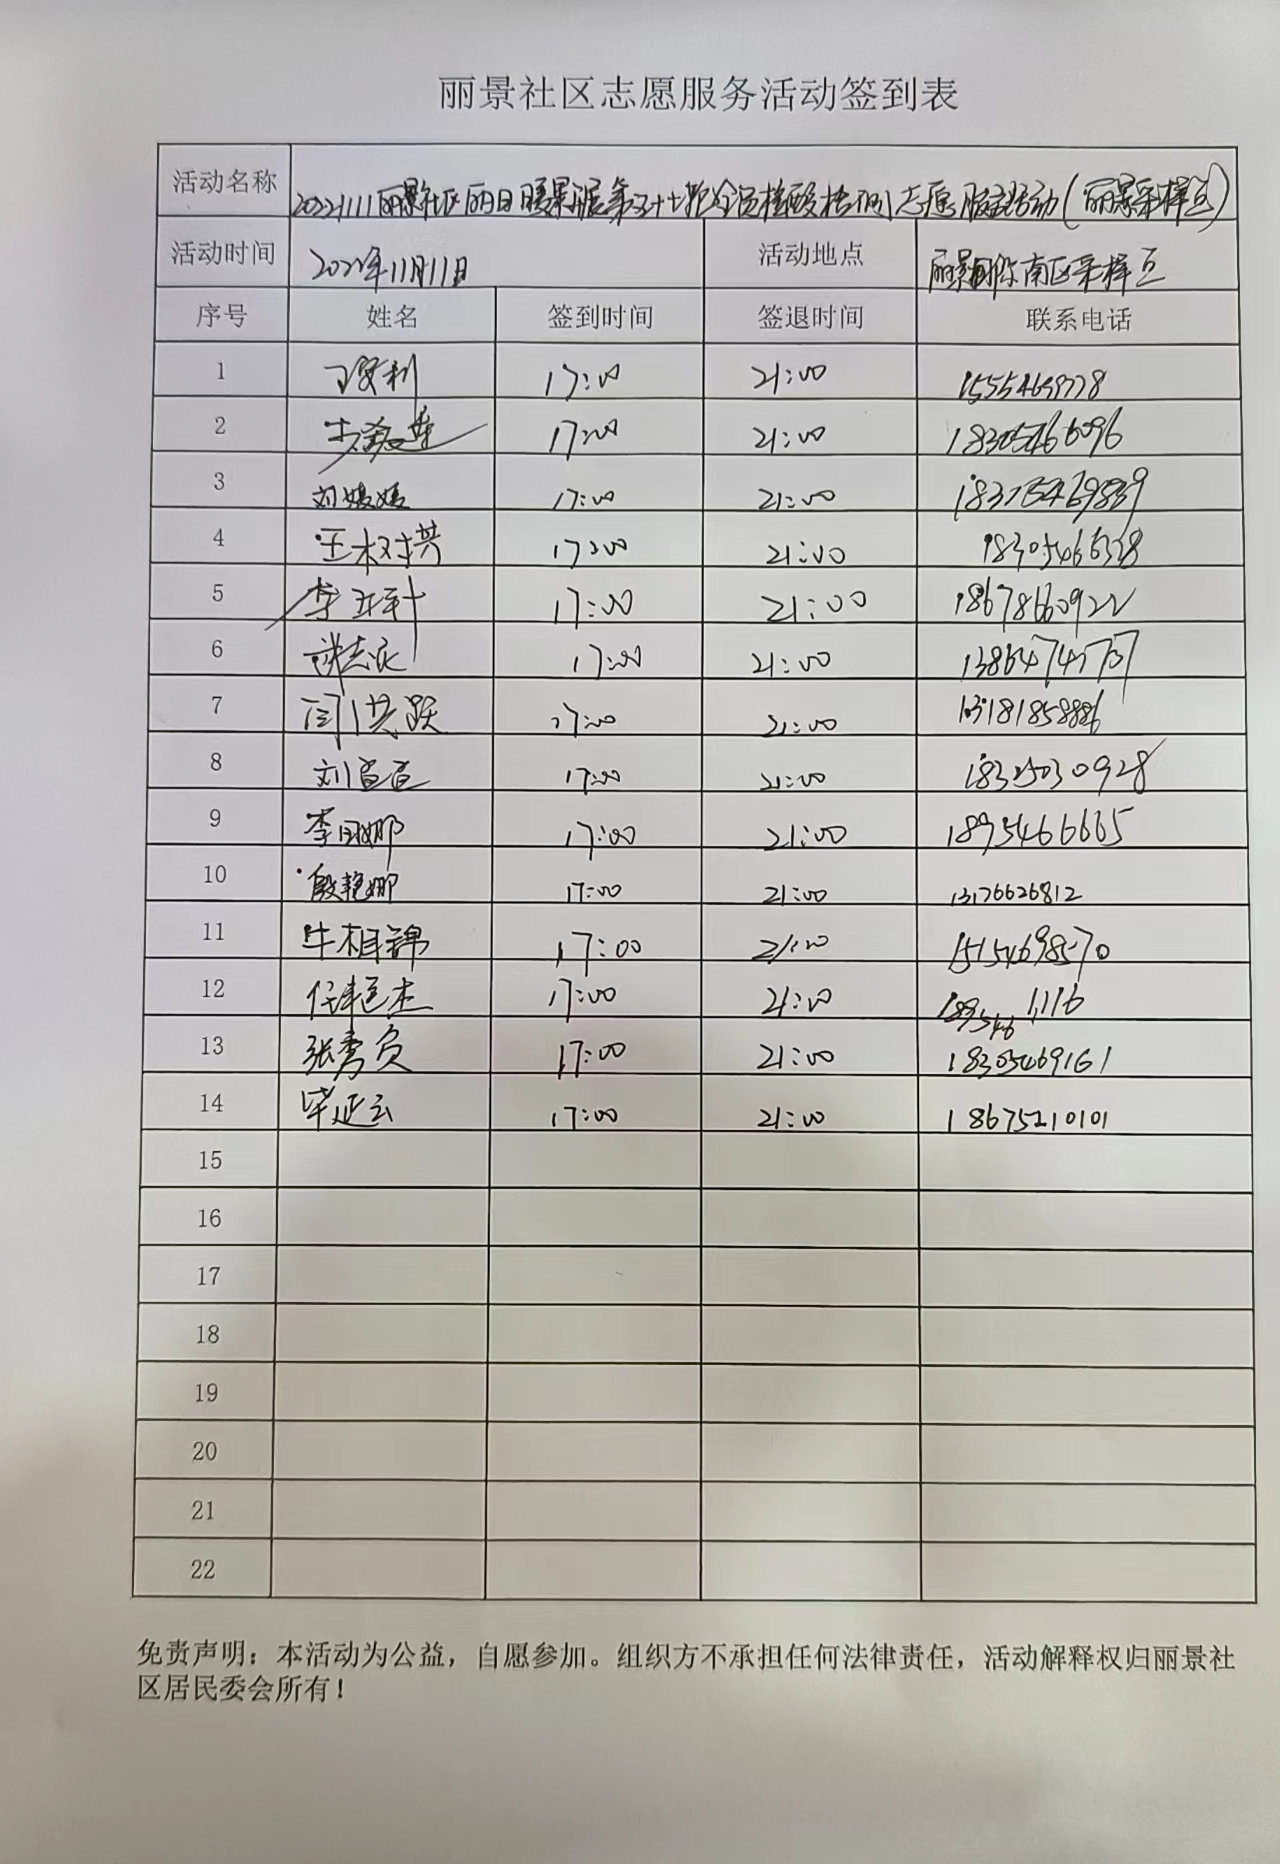 丽景社区志愿服务活动签到表
活动名称 20221111丽景社区丽日暖景第三十七轮全员核酸检测志愿服务活动(丽景采样点)
活动时间 2022年11月11日 活动地点 丽景国际南区采样点
序号 姓名 签到时间 签退时间 联系电话
1 17:00 21:00
2 17:00 21:00 18305466096
3 刘媛媛 17:00 21:00
4 王树洪 17:00 21:00 18305466328
5 17:00 21:00 18678660922
6 17:00 21:00
7 闫洪跃 17:00 21:00 13181858886
8 刘宣宣 17:00 21:00
9 李明娜 17:00 21:00 18954666665
10 殷艳娜 17:00 21:00 13176626812
11 牛相锦 17:00 21:00 15154698570
12 17:00 21:00
13 张秀贞 17:00 21:00 18305469161
14 毕延云 17:00 21:00 18675210101
15
16
17
18
19
20
21
22
免责声明：本活动为公益，自愿参加。组织方不承担任何法律责任，活动解释权归丽景社
区居民委会所有！